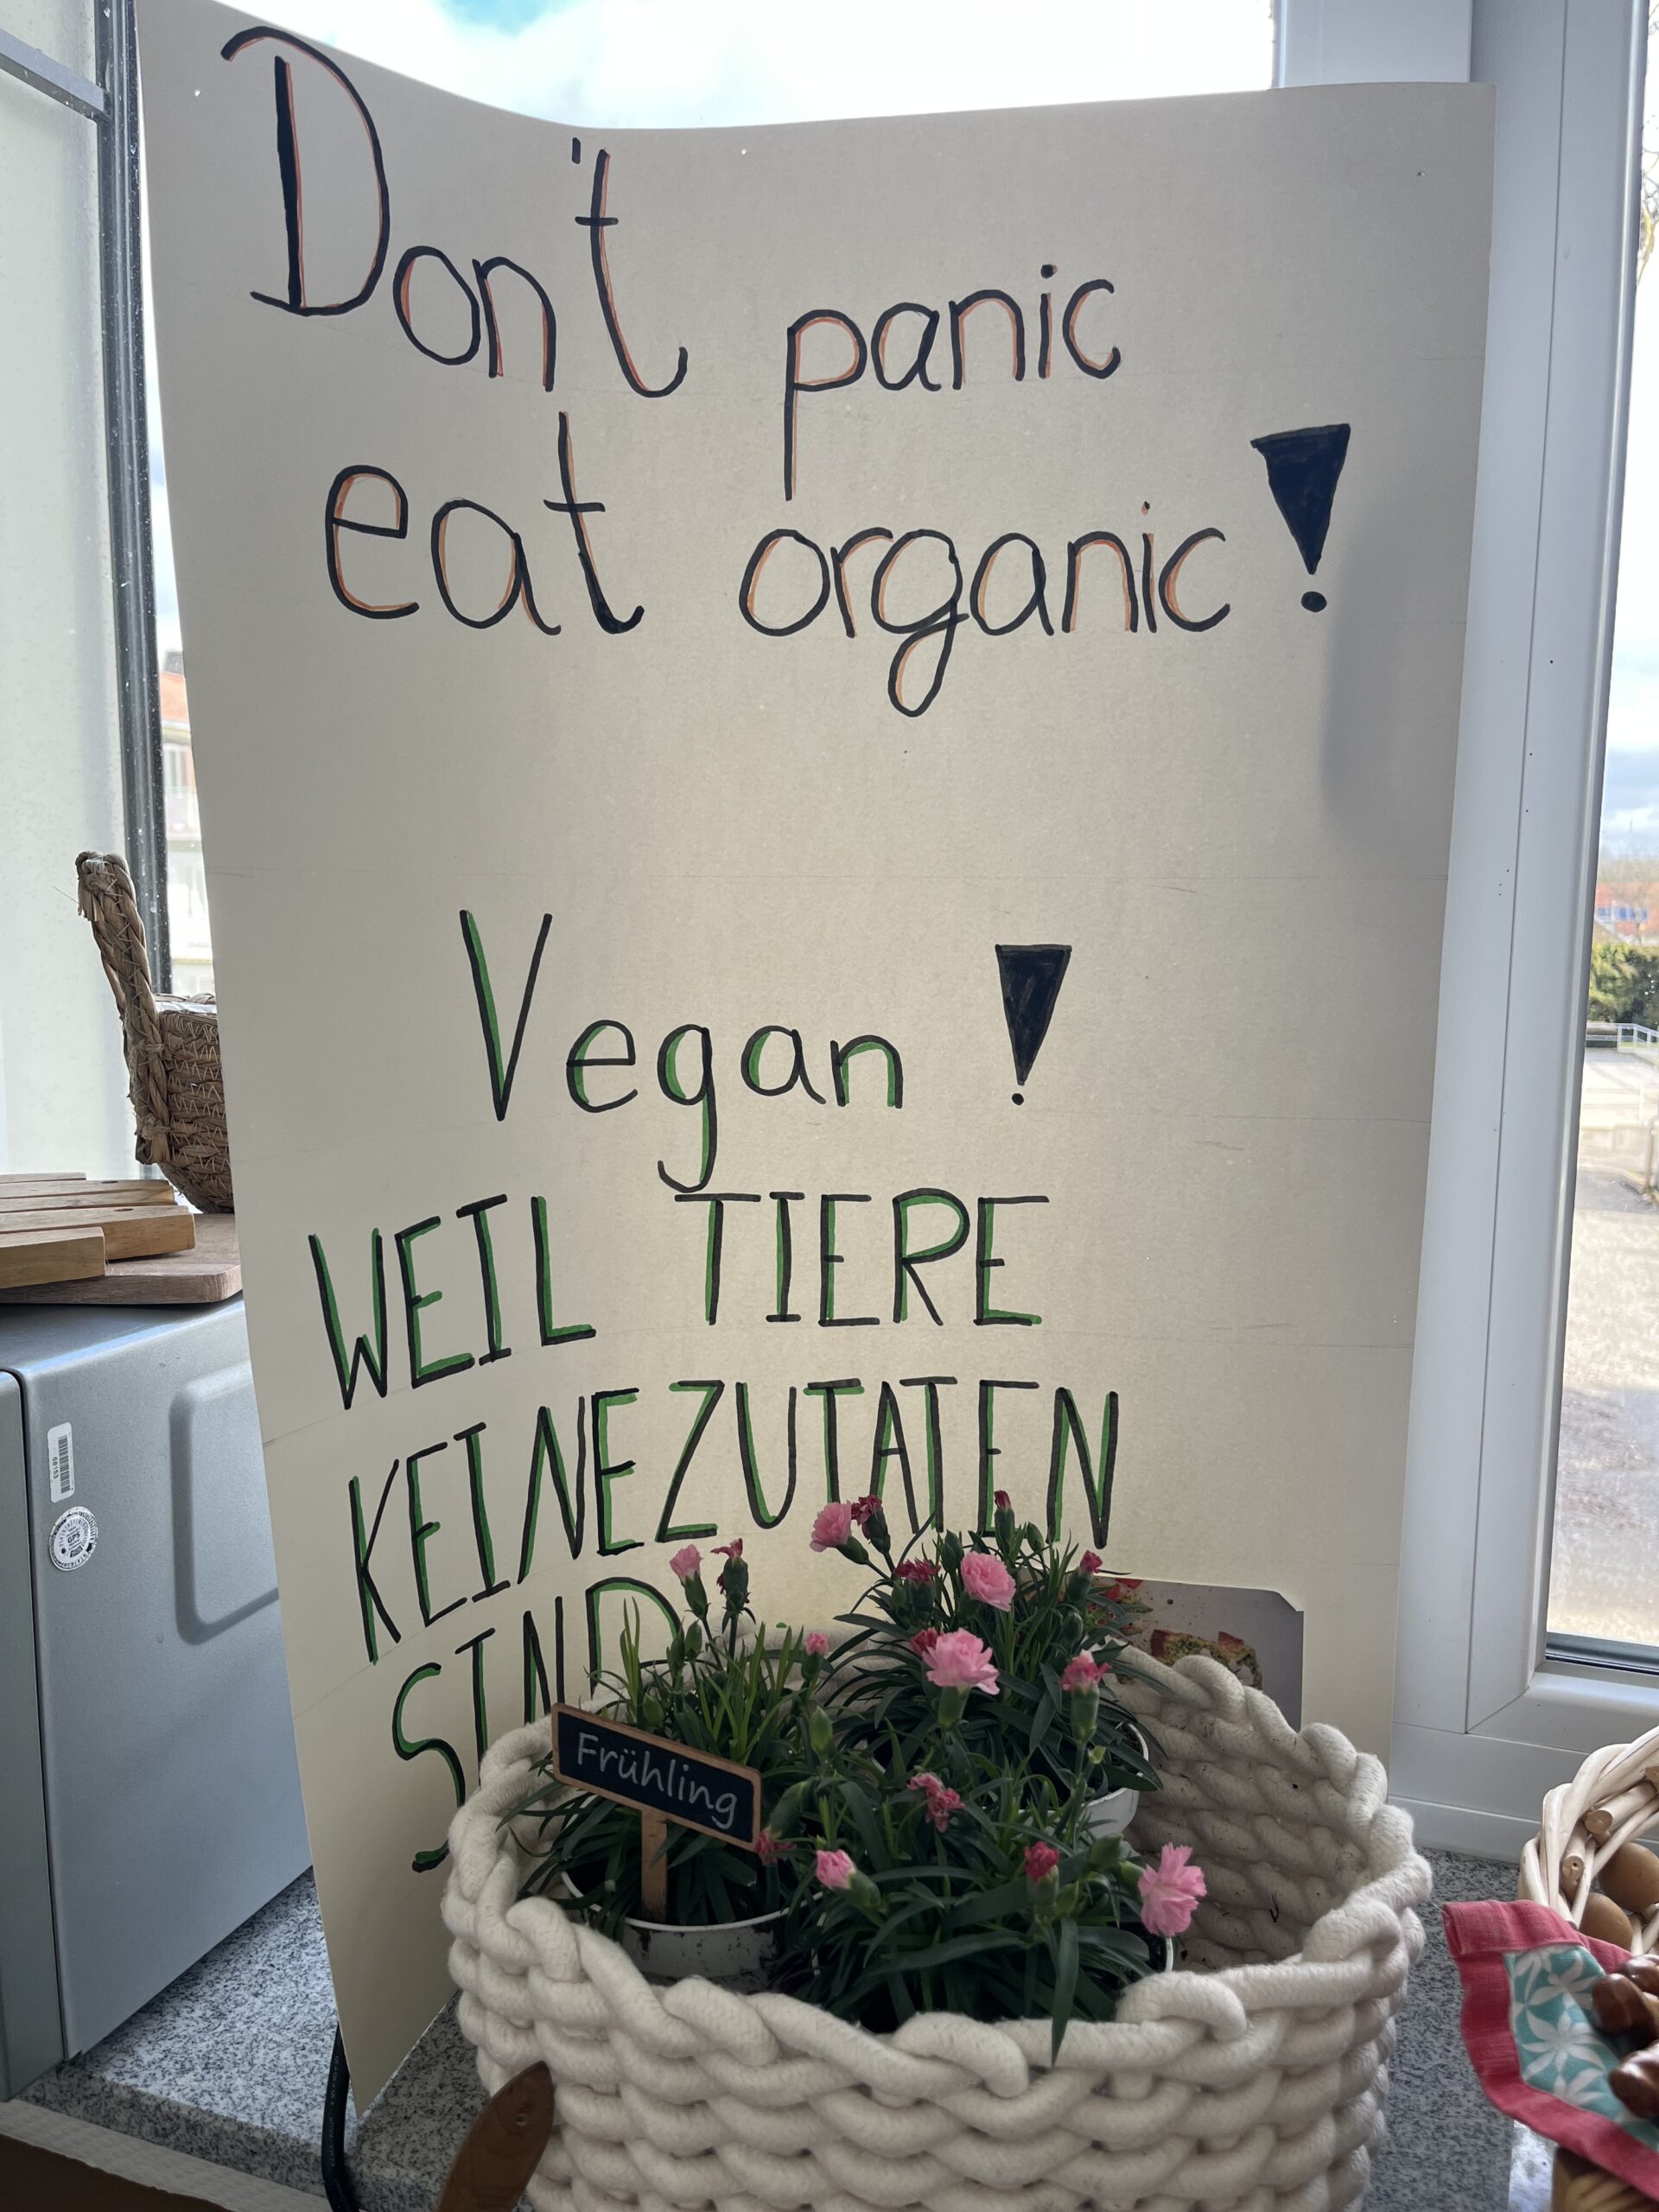 Don't panic
eat organic!
Vegan!
WEIL TIERE
KEINE ZUTATEN
SIND
Frühling
68153